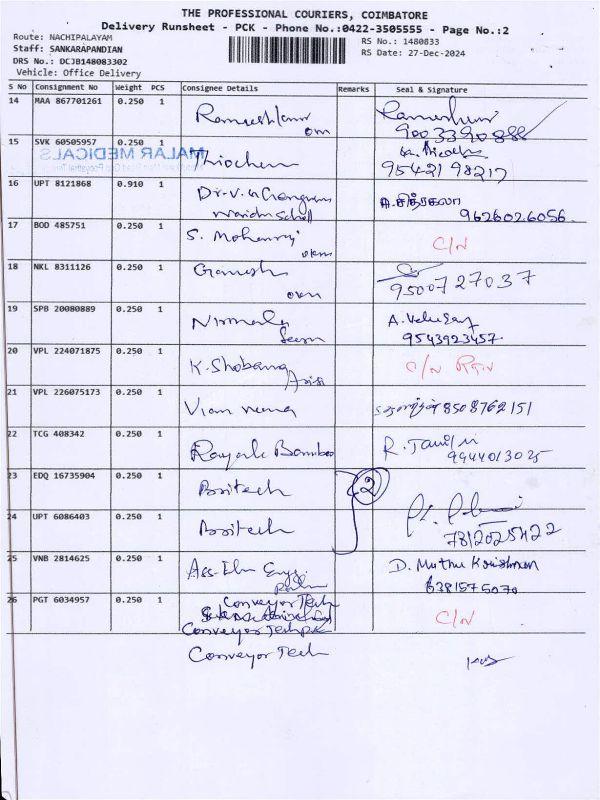 THE PROFESSIONAL COURIERS, COIMBATORE
Delivery Runsheet - PCK - Phone No.:0422-3505555 - Page No.:2
Route: NACHIPALAYAM
RS No.: 1480833
Staff: SANKARAPANDIAN
RS Date: 27-Dec-2024
DRS No.: DCJB148083302
Vehicle: Office Delivery
S No Consignment No Weight PCS Consignee Details Remarks Seal & Signature
14 MAA 867701261 0.250 1
9003390888
15 SVK 60505957 0.250 1 Thiochem
MALAR MEDICALS
95421 98217
16 UPT 8121868 0.910 1 Dr.V.
A.சித்ரகலா
9626026056
17 BOD 485751 0.250 1 S. Mohanraj
C/N
18 NKL 8311126 0.250 1 Ganesh
95007 27037
19 SPB 20080889 0.250 1 Nirmala
9543923457
20 VPL 224071875 0.250 1 K. Shobana
C/N
21 VPL 226075173 0.250 1
8508762151
22 TCG 408342 0.250 1
R. Tamil
9944013025
23 EDQ 16735904 0.250 1 Britech
2
24 UPT 6086403 0.250 1 Britech
7812025422
25 VNB 2814625 0.250 1
D. Muthu Krishnan
6381575070
26 PGT 6034957 0.250 1 Conveyor Tech
C/N
Conveyor Tech
Conveyor Tech